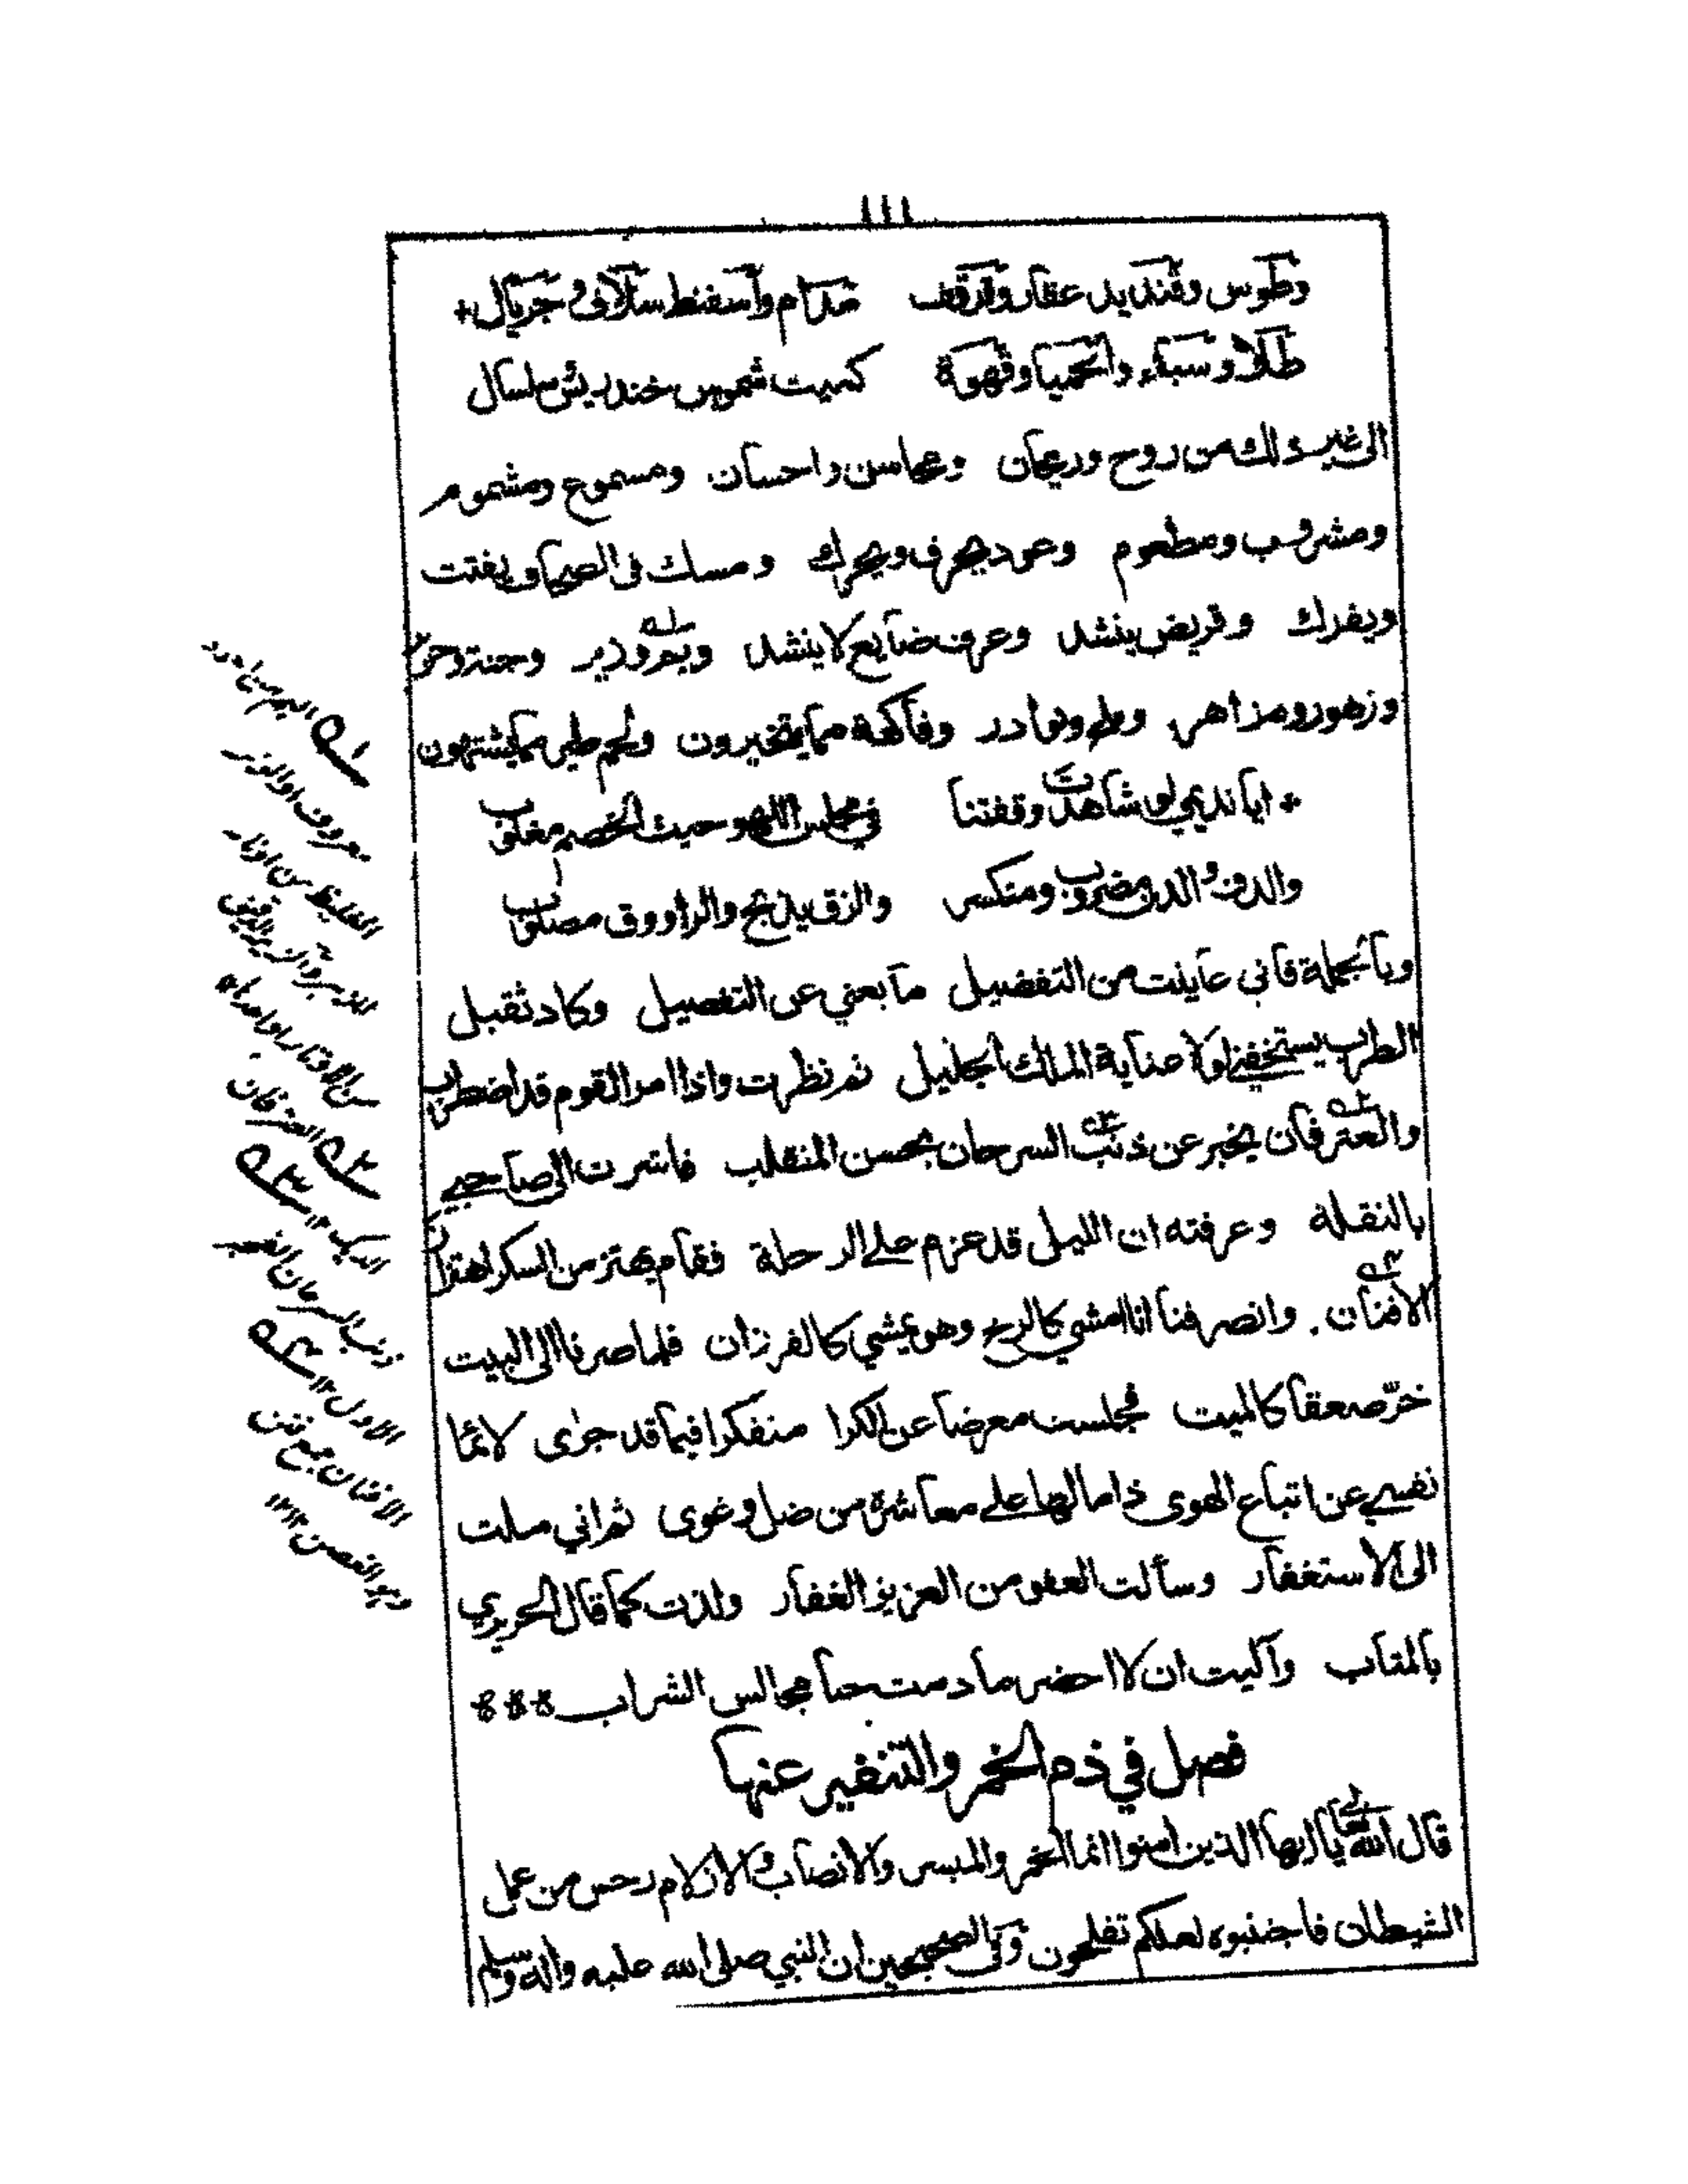 ١١١
وطوس وقنديد عقار وقرقف مدام واسفنط سلاف وجريال
طلا وسباء والحميا وقهوة كميت شموس خندريس سلسال
الى غير ذلك من روح وريحان ومحاسن واحسان ومسموع ومشموم
ومشروب ومطعوم وعود يحرق ويحرك ومسك فى الصحاف يفتت
ويفرك وقريض ينشد وعرف ضايع لا ينشد وبم وزير وجنة وحرير
وزهور ومزاهر ونوادر وفاكهة مما يتخيرون ولحم طير مما يشتهون
ايا نديمي لو شاهدت وقفتنا في مجلس اللهو حيث الخصم مغلوب
والدف والدن مضروب ومنكسر والزق يذبح والراووق مصلوب
وبالجملة فاني عاينت من التفضيل ما يغني عن التفصيل وكاد ثقيل
الطرب يستخفني لولا عناية الملك الجليل ثم نظرت واذا امر القوم قد اضطرب
والعترفان يخبر عن ذنب السرحان بحسن المنقلب فاشرت الى صاحبي
بالنقلة وعرفته ان الليل قد عزم على الرحلة فقام يهتز من السكر اهتزاز
الافنان وانصرفنا انا امشي كالرخ وهو يمشي كالفرزان فلما صرنا الى البيت
خرّ صعقا كالميت فجلست معرضا عن الكرا متفكرا فيما قد جرى لائما
نفسي عن اتباع الهوى ذاما لها على معاشرة من ضل وغوى ثم اني ملت
الى الاستغفار وسألت العفو من العزيز الغفار ولذت كما قال الحريري
بالمتاب وآليت ان لا احضر ما دمت حيا مجالس الشراب
فصل في ذم الخمر والتنفير عنها
قال الله تعالى يا ايها الذين امنوا انما الخمر والميسر والانصاب والازلام رجس من عمل
الشيطان فاجتنبوه لعلكم تفلحون وفى الصحيحين ان النبي صلى الله عليه واله وسلم
١ البم من العود
معروف او الوتر
الغليظ من اوتار
المزهر والزير الدقيق
من الاوتار او احدها
٢ العترفان
الديك ١٢ ٣
ذنب السرحان الفجر
الاول ١٢ ٤
الافنان جمع فنن
وهو الغصن ١٢